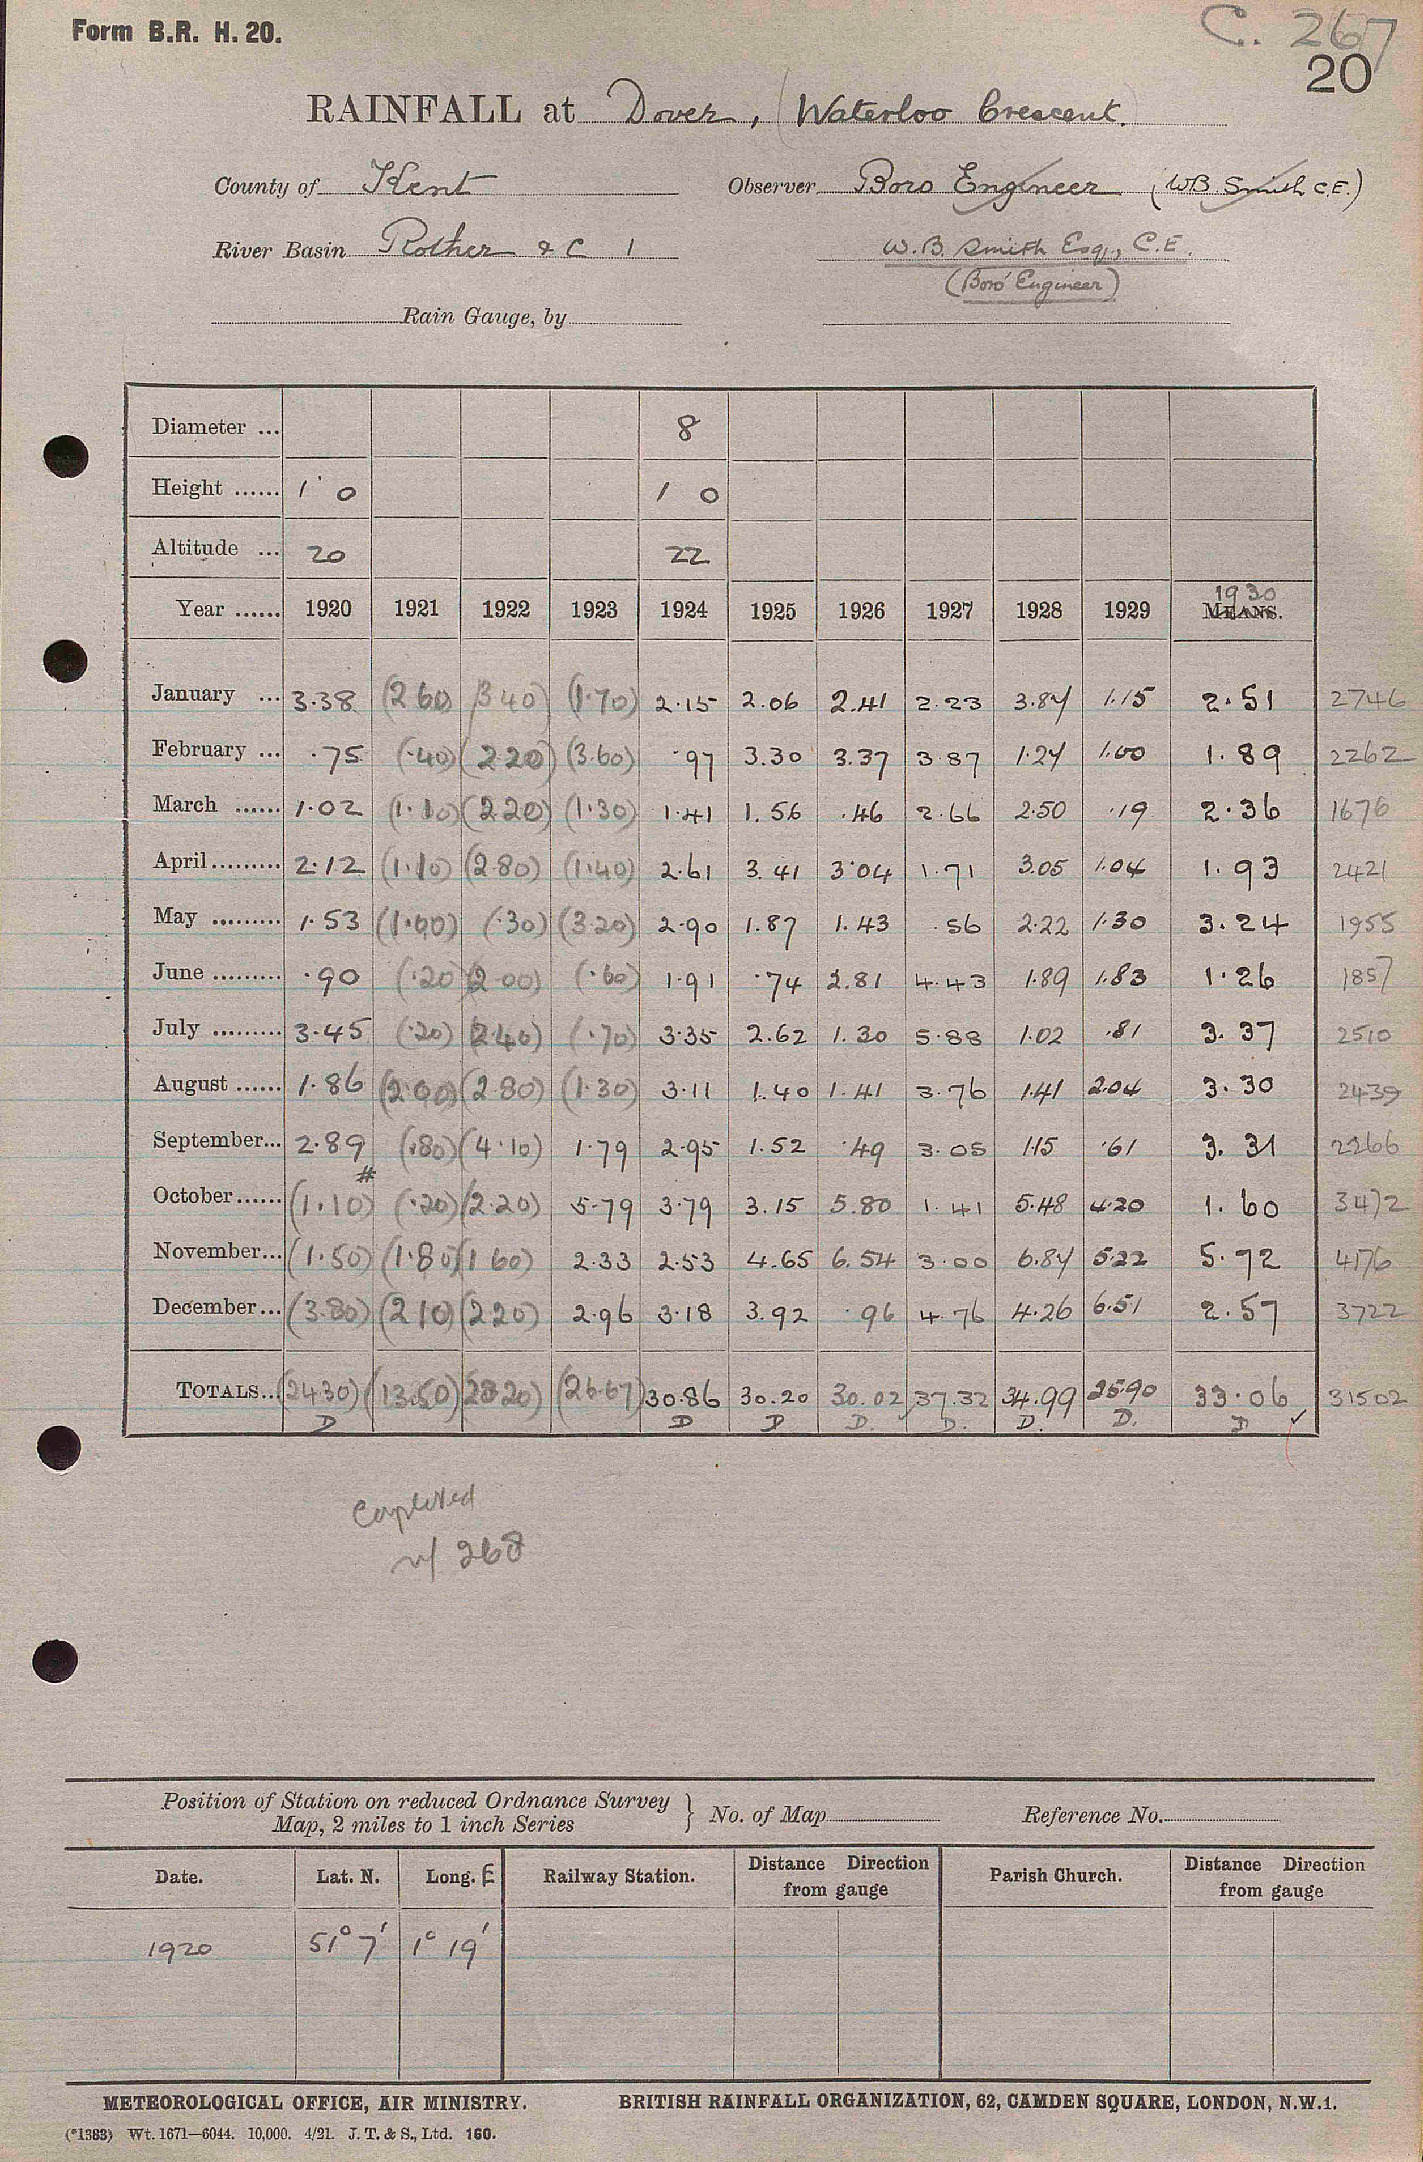 Form B.R. H. 20.
C. 267
20
RAINFALL at Dover, (Waterloo Crescent.)
County of Kent Observer Boro Engineer (WB Smith C.E.)
River Basin Rother & C 1 W.B. Smith Esq., C.E.
(Boro' Engineer)
Rain Gauge, by
Diameter ... 8
Height ...... 1' 0 1 0
Altitude ... 20 22
1930
Year ...... 1920 1921 1922 1923 1924 1925 1926 1927 1928 1929 MEANS.
January ... 3.38 (2.60) (3.40) (1.70) 2.15 2.06 2.41 2.23 3.84 1.15 2.51 2746
February ... .75 (.40) (2.20) (3.60) .97 3.30 3.37 3.87 1.24 1.00 1.89 2262
March ...... 1.02 (1.10) (2.20) (1.30) 1.41 1.56 .46 2.66 2.50 .19 2.36 1676
April ......... 2.12 (1.10) (2.80) (1.40) 2.61 3.41 3.04 1.71 3.05 1.04 1.93 2421
May ......... 1.53 (1.00) (.30) (3.20) 2.90 1.87 1.43 .56 2.22 1.30 3.24 1955
June ......... .90 (.20) (2.00) (.60) 1.91 .74 2.81 4.43 1.89 1.83 1.26 1857
July ......... 3.45 (.20) (2.40) (.70) 3.35 2.62 1.30 5.88 1.02 .81 3.37 2510
August ...... 1.86 (2.00) (2.80) (1.30) 3.11 1.40 1.41 3.76 1.41 2.04 3.30 2439
September... 2.89 (.80) (4.10) 1.79 2.95 1.52 .49 3.05 1.15 .61 3.31 2266
#
October...... (1.10) (.20) (2.20) 5.79 3.79 3.15 5.80 1.41 5.48 4.20 1.60 3472
November... (1.50) (1.80) (1.60) 2.33 2.53 4.65 6.54 3.00 6.84 5.22 5.72 4176
December... (3.80) (2.10) (2.20) 2.96 3.18 3.92 .96 4.76 4.26 6.51 2.57 3722
TOTALS... (24.30) (13.50) (28.20) (26.67) 30.86 30.20 30.02 37.32 34.99 25.90 33.06 31502
D D D D. D. D. D. D ✓
Completed
w/ 268
Position of Station on reduced Ordnance Survey
Map, 2 miles to 1 inch Series } No. of Map Reference No.
Date. Lat. N. Long. E Railway Station. Distance Direction from gauge Parish Church. Distance Direction from gauge
1920 51° 7' 1° 19'
METEOROLOGICAL OFFICE, AIR MINISTRY. BRITISH RAINFALL ORGANIZATION, 62, CAMDEN SQUARE, LONDON, N.W.1.
(*1383) Wt. 1671—6044. 10,000. 4/21. J. T. & S., Ltd. 160.